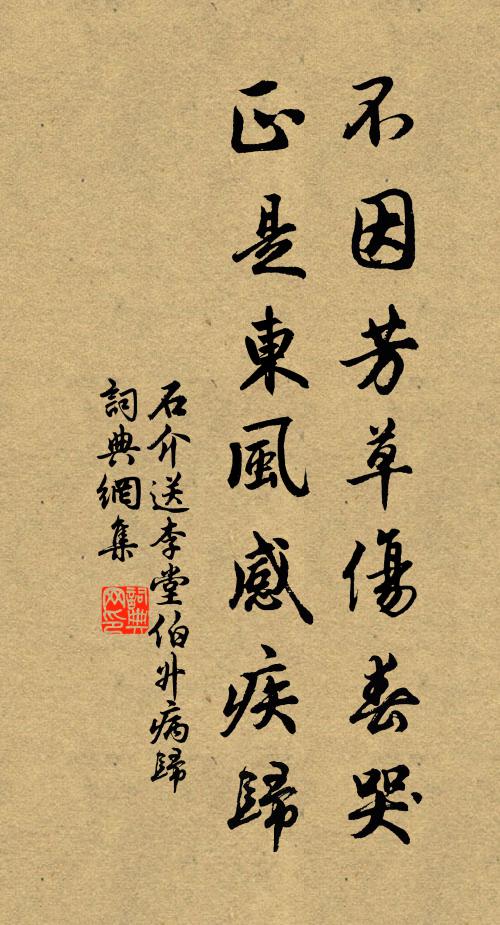 不因芳草傷春哭
正是東風感疾歸
石介送李堂伯升病歸
詞典網集
詞典網印